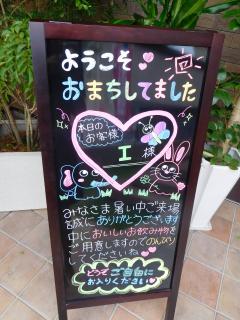 ようこそ
おまちしてました
本日の
お客様
I 様
みなさま暑い中ご来場
誠にありがとうございます
中においしいお飲み物を
ご用意しますのでのんびり
してくださいね
どうぞご自由に
お入りください